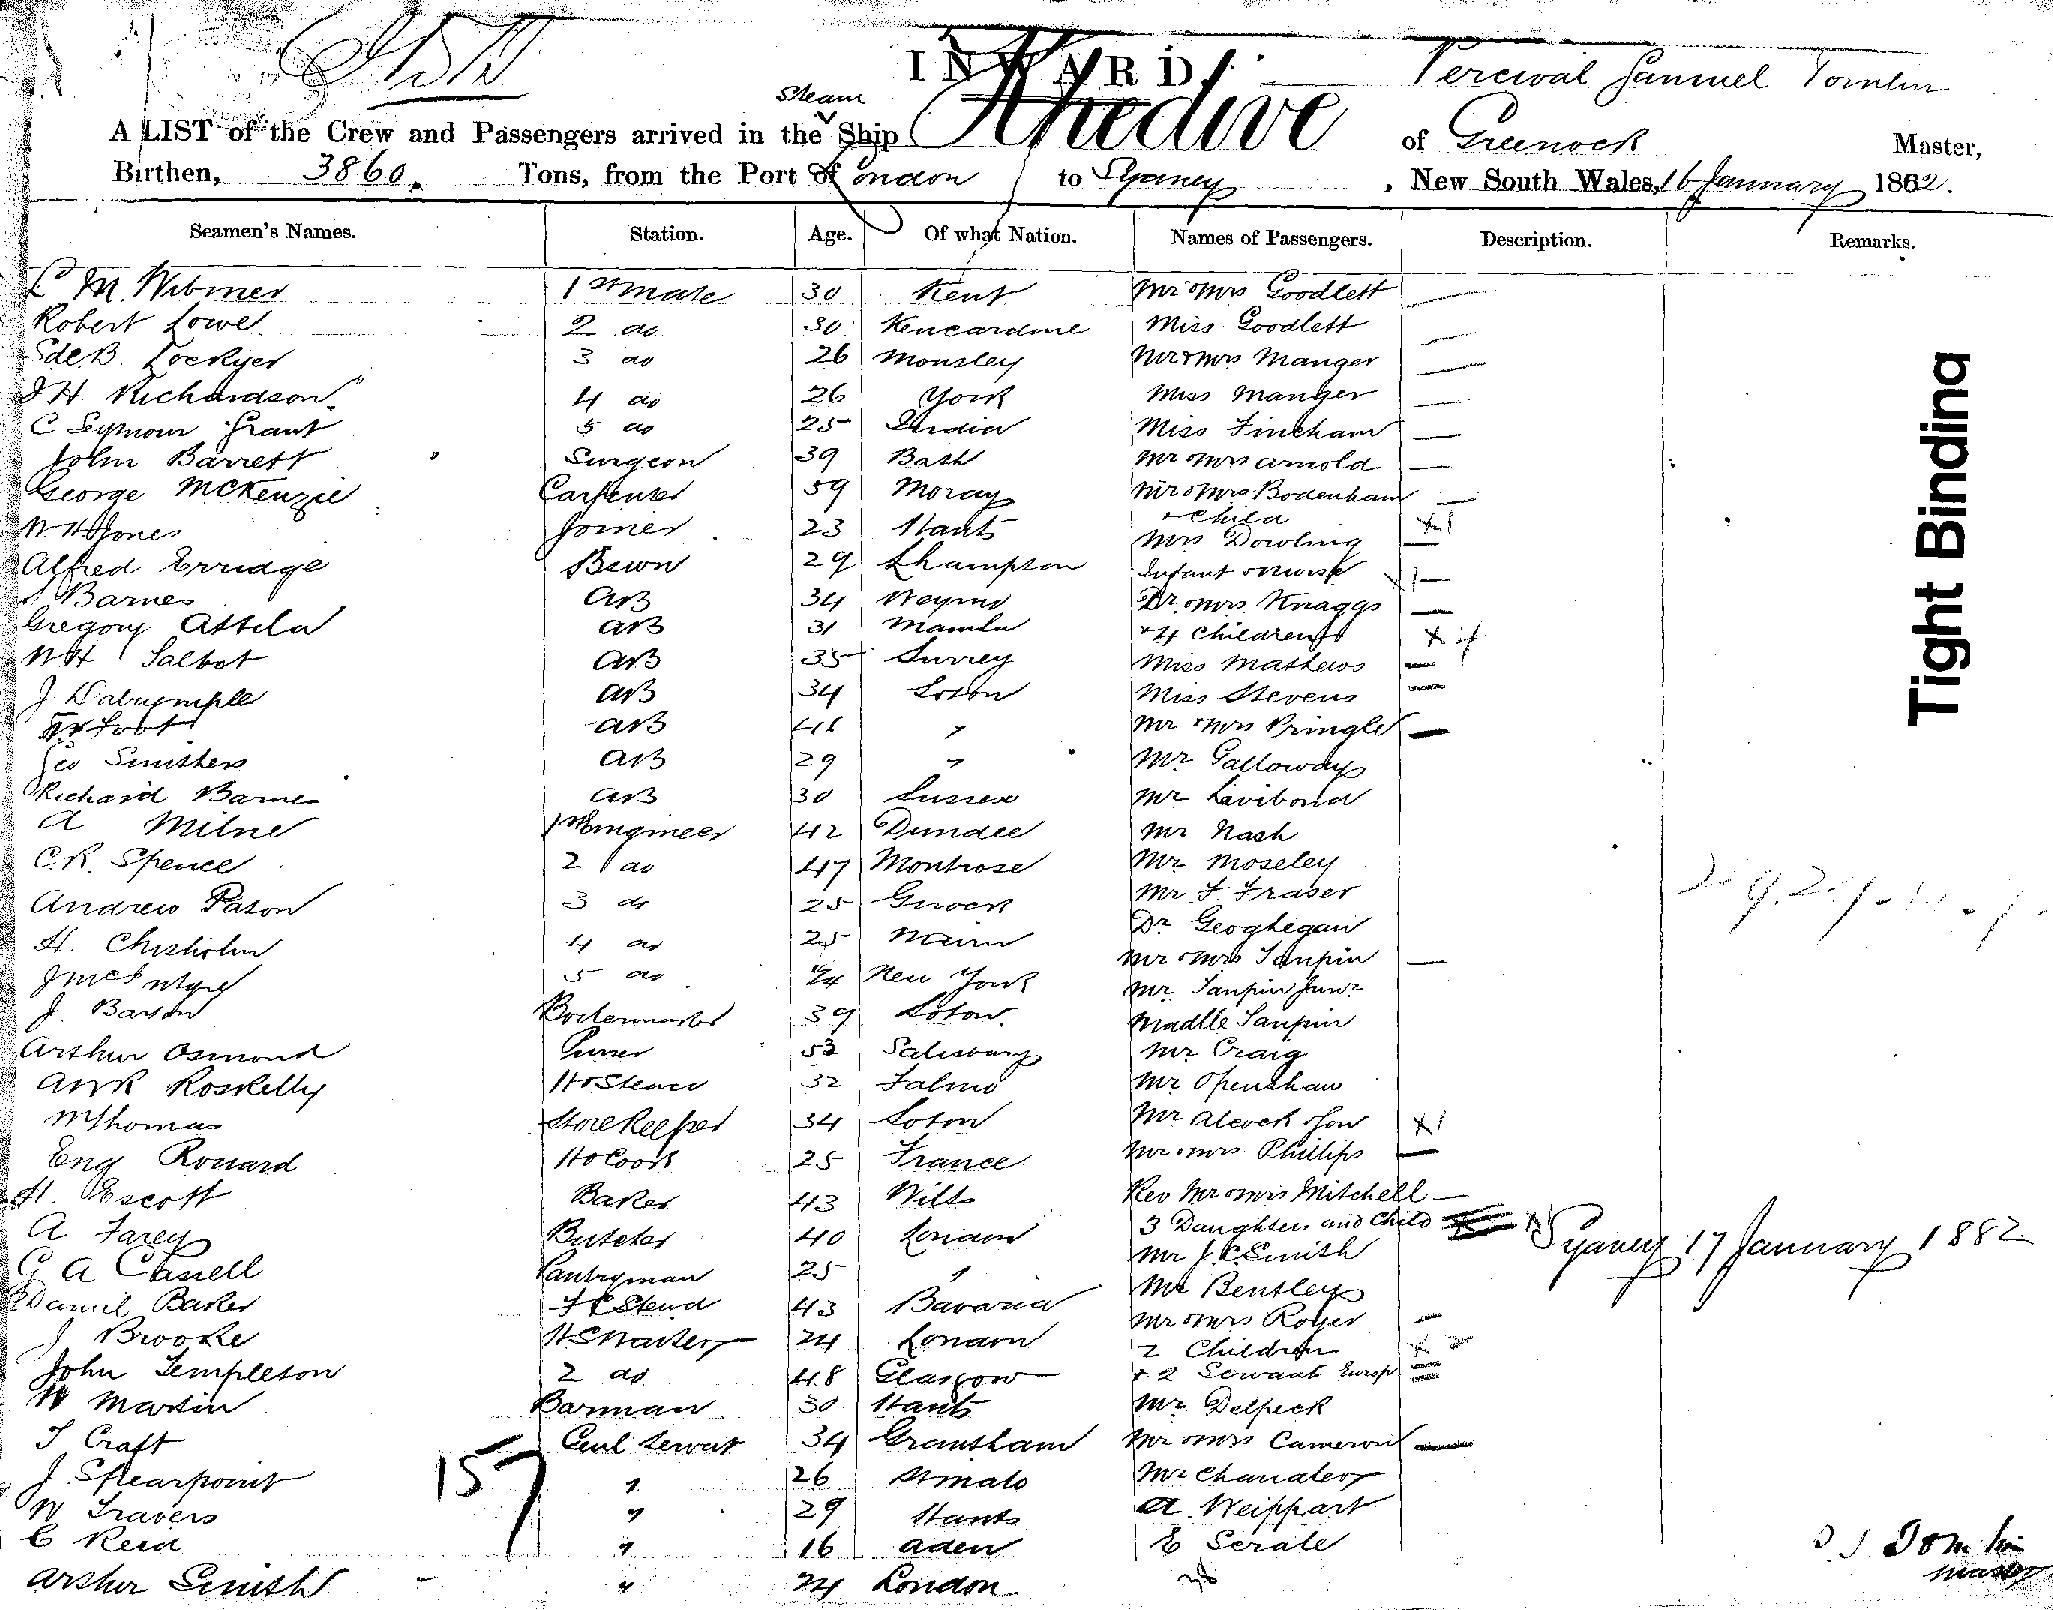 INWARD
Percival Samuel Tomlin
A LIST of the Crew and Passengers arrived in the Steam Ship Khedive of Greenock Master,
Birthen, 3860. Tons, from the Port of London to Sydney, New South Wales, 16 January 1882.
Seamen's Names. Station. Age. Of what Nation. Names of Passengers. Description. Remarks.
C M. Wibmer 1st mate 30 Kent Mr & Mrs Goodlett
Robert Lowe 2 do 30 Kencardine Miss Goodlett
de B. Lockyer 3 do 26 Mr & Mrs Manger
J H. Richardson 4 do 26 York Miss Manger
C Seymour Grant 5 do 25 India Miss Fincham
John Barrett Surgeon 39 Bath Mr & Mrs Arnold
George McKenzie Carpenter 59 Moray Mr & Mrs Bodenham
+ Child x1
W H Jones Joiner 23 Hants Mrs Dowling
Alfred Erridge Bswn 29 Shampton Infant & nurse
Barnes AB 34 Weymo Dr & Mrs Knaggs
Gregory Attila AB 31 Manila + 4 Children
W H Talbot AB 35 Surrey Miss Mathews
J Dalrymple AB 34 Soton Miss Stevens
Foot AB 46 " Mr & Mrs Pringle
Geo Smithers AB 29 " Mr Galloway
Richard Barnes AB 30 Sussex Mr Lavibond
A Milne 1st Engineer 42 Dundee Mr Nash
C.R. Spence 2 do 47 Montrose Mr Moseley
Andrew Paton 3 do 25 Gnock Mr F Fraser
H. Chisholm 4 do 25 Nairn Dr Geoghegan
J McIntyre 5 do 24 New York Mr & Mrs Saupin
Mr Saupin Junr
J. Barton Boilermaker 39 Soton. Madlle Saupin
Arthur Osmond Purser 53 Salisbury Mr Craig
A W R Roskelly Hd Stewd 32 Falmo Mr Openshaw
W Thomas Storekeeper 34 Soton Mr Alcock & Son x1
Eng Rouard Hd Cook 25 France Mr & Mrs Phillips
H. Escott Baker 43 Wilts Rev Mr & Mrs Mitchell
3 Daughters and Child
A Farey Butcher 40 London Mr J. C. Smith
Sydney 17 January 1882
G A Cassell Pantryman 25 " Mr Bentley
Daniel Barker Stewd 43 Bavaria Mr & Mrs Royer
J Brooke 24 London 2 Children
John Templeton 2 do 48 Glasgow + 2 Servants Europ
W Martin Barman 30 Hants Mr Delpeck
T Craft Genl Servnt 34 Grantham Mr & Mrs Cameron
J. Spearpoint " 26 St Malo Mr Chandler
157
W Travers " 29 Hants A. Weippart
C Reid " 16 Aden E Serale
Arthur Smith " 24 London
Tomlin
Master
Tight Binding